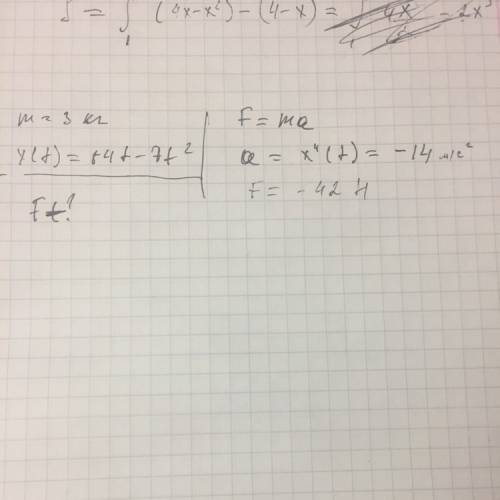 S = ∫₁ (4x-x²)-(4-x) = ∫ 4x - 2x³
m = 3 кг
x(t) = t4t-7t²
F-?
F = ma
a = x"(t) = -14 м/с²
F = -42 Н